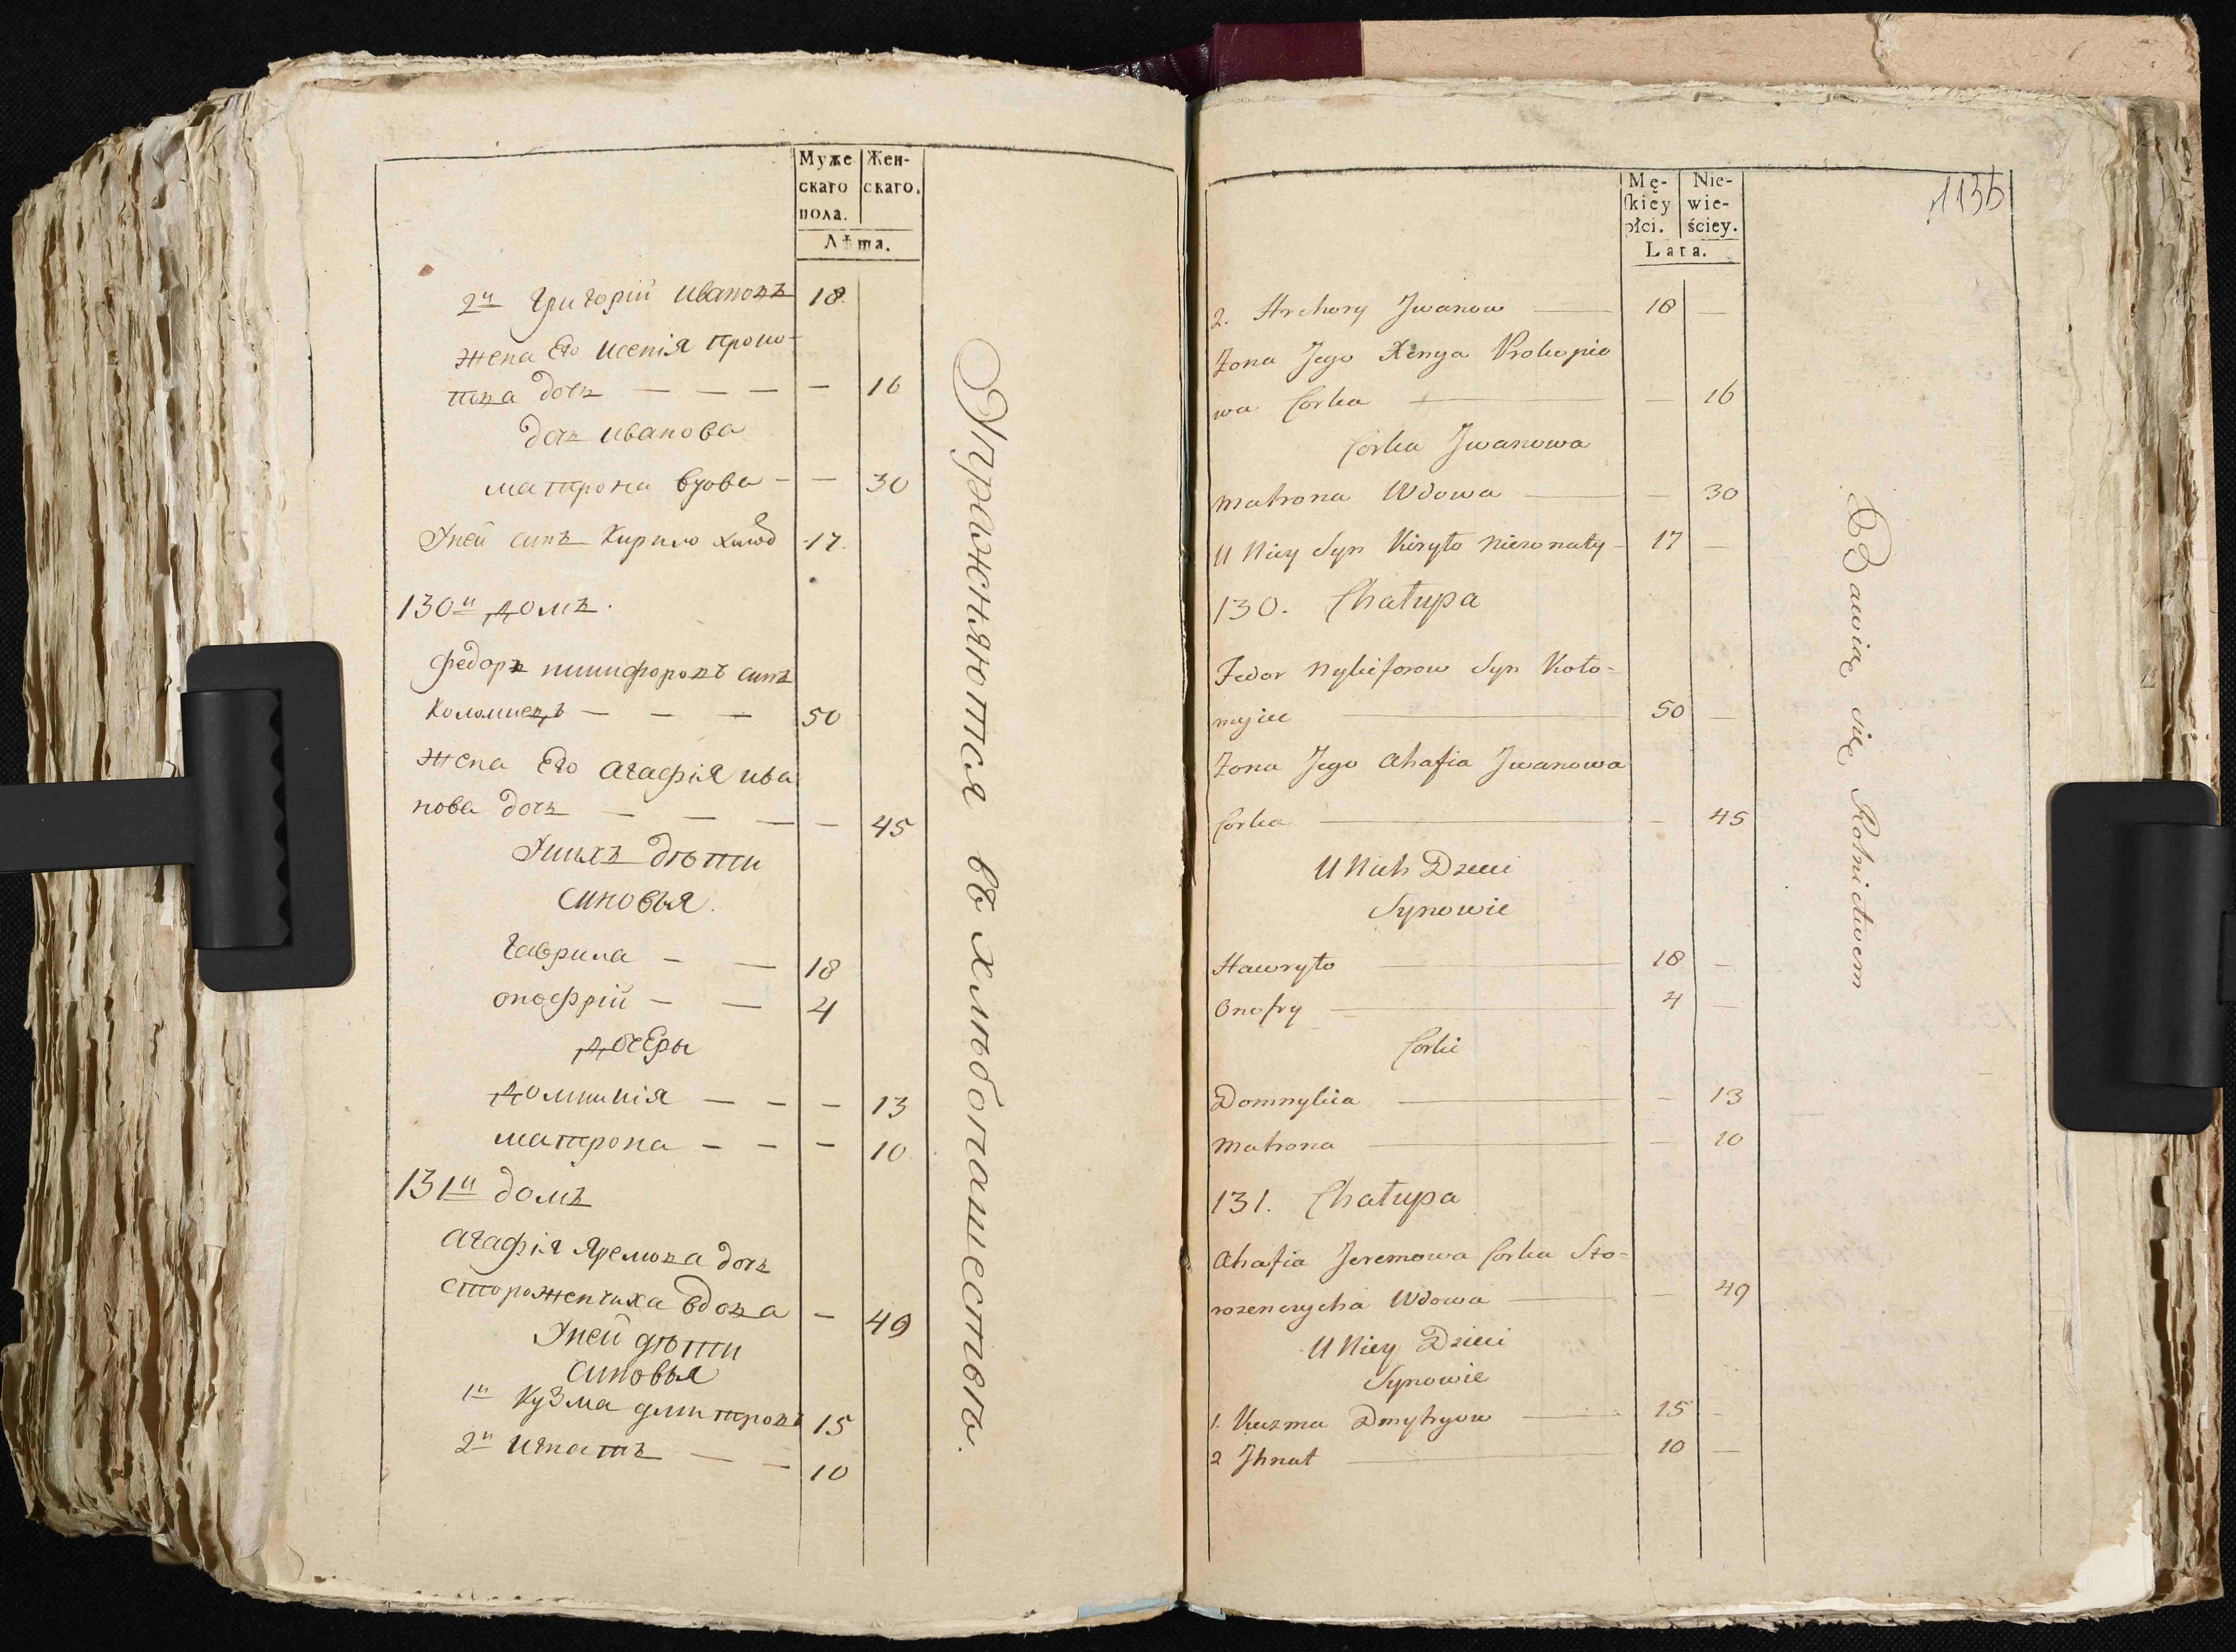 Муже Жен-
скаго скаго.
пола.
Лѣта.
2й Григорій Ивановъ 18.
Жена Его Ксенія Проко-
пова дочь — — — — 16
дочь Иванова
Матрона вдова — — 30
Уней синъ Кирило 17.
130й домъ.
Федоръ Никифоровъ синъ
Коломиецъ — — — 50
Жена Его Агафія Ива
нова дочь — — — — 45
Унихъ дѣти
Синовья.
Гаврила — — 18
Онофрій — — 4
дочеры
Домникія — — — 13
Матрона — — — 10
131й домъ
Агафія Яремова дочь
Стороженчиха вдова — 49
Уней дѣти
Синовья
1й Кузма Дмитровъ 15
2й Игнатъ — — 10
Упражняются въ хлѣбопашествѣ.
1136
Mę- Nie-
skiey wie-
płci. ściey.
Lata.
2. Hrehory Jwanow — 18 —
Żona Jego Xenya Prokopio
wa Corka — — 16
Corka Jwanowa
Matrona Wdowa — — 30
U Niey Syn Kiryło Nieżonaty — 17 —
130. Chałupa
Fedor Nykiforow Syn Koło-
myiec — 50 —
Żona Jego Ahafia Jwanowa
Corka — — 45
U Nich Dzieci
Synowie
Hawryło — 18 —
Onofry — 4 —
Corki
Domnykia — — 13
Matrona — — 10
131. Chałupa
Ahafia Jeremowa Corka Sto-
rozenczycha Wdowa — — 49
U Niey Dzieci
Synowie
1. Kuzma Dmytryow — 15 —
2 Jhnat — 10 —
Bawią się Rolnictwem